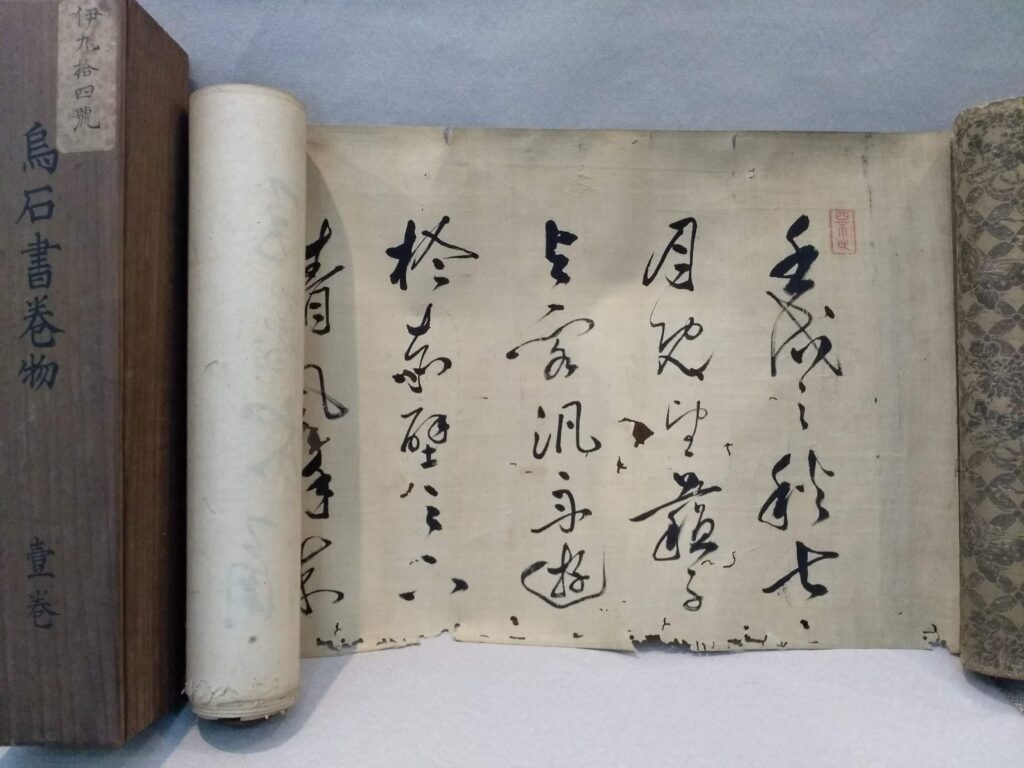 壬戌之秋七
月既望蘇子
与客汎舟遊
於赤壁之下
清風徐来
伊九拾四號
烏石書卷物 壹卷